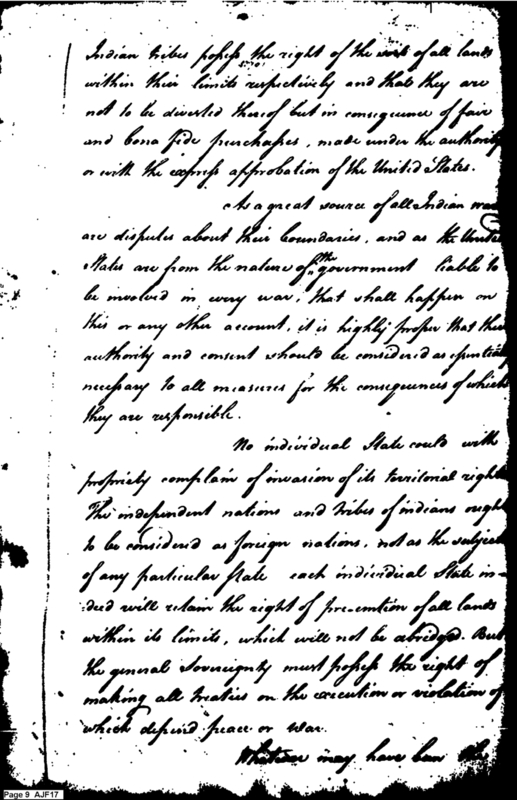 Indian tribes possess the right of the soil of all lands
within their limits respectively and that they are
not to be divested thereof but in consequence of fair
and bona fide purchases, made under the authority
or with the express approbation of the United States.
As a great source of all Indian wars
are disputes about their boundaries, and as the United
States are from the nature of the government liable to
be involved in every war, that shall happen on
this or any other account, it is highly proper that their
authority and consent should be considered as essentially
necessary to all measures for the consequences of which
they are responsible.
No individual State could with
propriety complain of invasion of its territorial rights
The independent nations and tribes of indians ought
to be considered as foreign nations, not as the subjects
of any particular state each individual State in-
deed will retain the right of pre-emtion of all lands
within its limits, which will not be abridged. But
the general Sovereignty must possess the right of
making all treaties on the execution or violation of
which depend peace or war.
Whatever may have been the
Page 9 AJF17